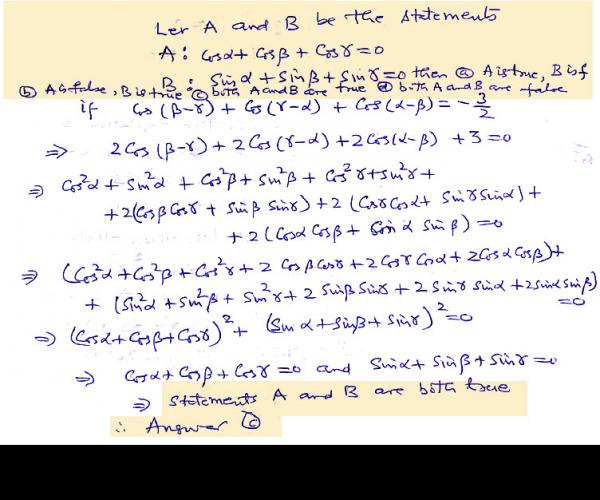 Let A and B be the statements
A: cosα + cosβ + cosγ = 0
B: sinα + sinβ + sinγ = 0 then ⓐ A is true, B is f
ⓑ A is false, B is true ⓒ both A and B are true ⓓ both A and B are false
if cos(β-γ) + cos(γ-α) + cos(α-β) = -3/2
⇒ 2cos(β-γ) + 2cos(γ-α) + 2cos(α-β) + 3 = 0
⇒ cos²α + sin²α + cos²β + sin²β + cos²γ + sin²γ +
+ 2(cosβ cosγ + sinβ sinγ) + 2(cosγ cosα + sinγ sinα) +
+ 2(cosα cosβ + sinα sinβ) = 0
⇒ (cos²α + cos²β + cos²γ + 2cosβ cosγ + 2cosγ cosα + 2cosα cosβ) +
+ (sin²α + sin²β + sin²γ + 2sinβ sinγ + 2sinγ sinα + 2sinα sinβ) = 0
⇒ (cosα + cosβ + cosγ)² + (sinα + sinβ + sinγ)² = 0
⇒ cosα + cosβ + cosγ = 0 and sinα + sinβ + sinγ = 0
⇒ statements A and B are both true
∴ Answer ⓒ